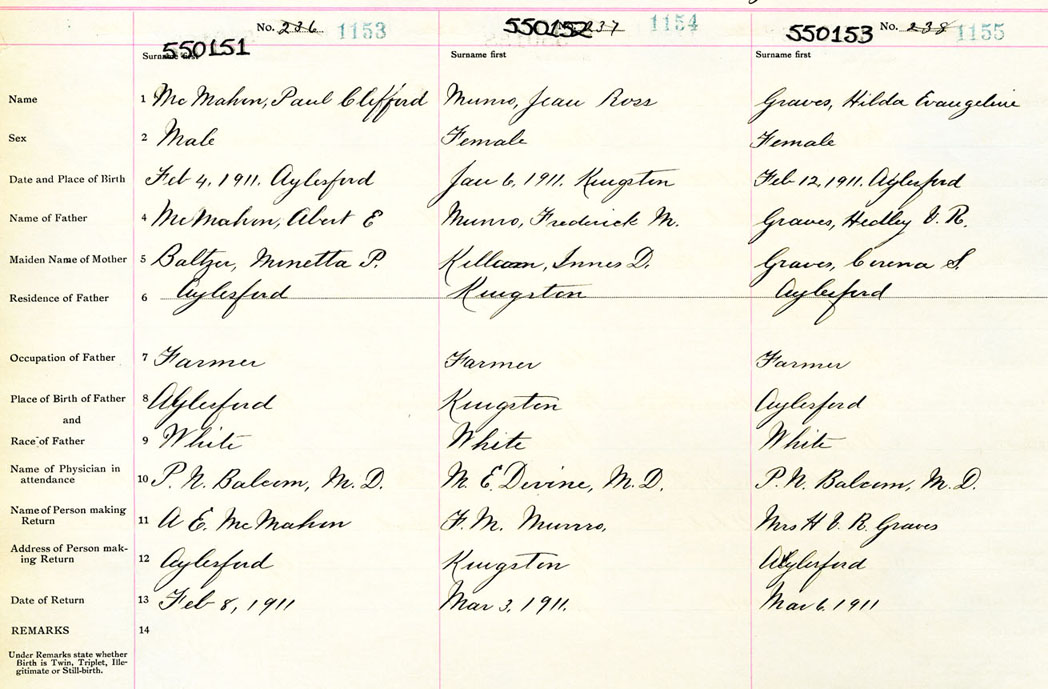 No. 236 1153 No. 237 1154 No. 238 1155
550151 550152 550153
Surname first Surname first Surname first
Name 1 McMahon, Paul Clifford Munro, Jean Ross Graves, Hilda Evangeline
Sex 2 Male Female Female
Date and Place of Birth 3 Feb 4, 1911. Aylesford Jan 6, 1911. Kingston Feb 12, 1911. Aylesford
Name of Father 4 McMahon, Abert E Munro, Frederick M. Graves, Hedley V. R.
Maiden Name of Mother 5 Baltzer, Minetta P. Killcam, Innes D. Graves, Cerena S.
Residence of Father 6 Aylesford Kingston Aylesford
Occupation of Father 7 Farmer Farmer Farmer
Place of Birth of Father 8 Aylesford Kingston Aylesford
and
Race of Father 9 White White White
Name of Physician in
attendance 10 P. N. Balcom, M. D. M. E. Divine, M. D. P. N. Balcom, M. D.
Name of Person making
Return 11 A E. McMahon F. M. Munro, Mrs H V. R. Graves
Address of Person mak-
ing Return 12 Aylesford Kingston Aylesford
Date of Return 13 Feb 8, 1911 Mar 3, 1911. Mar 6, 1911
REMARKS 14
Under Remarks state whether
Birth is Twin, Triplet, Ille-
gitimate or Still-birth.